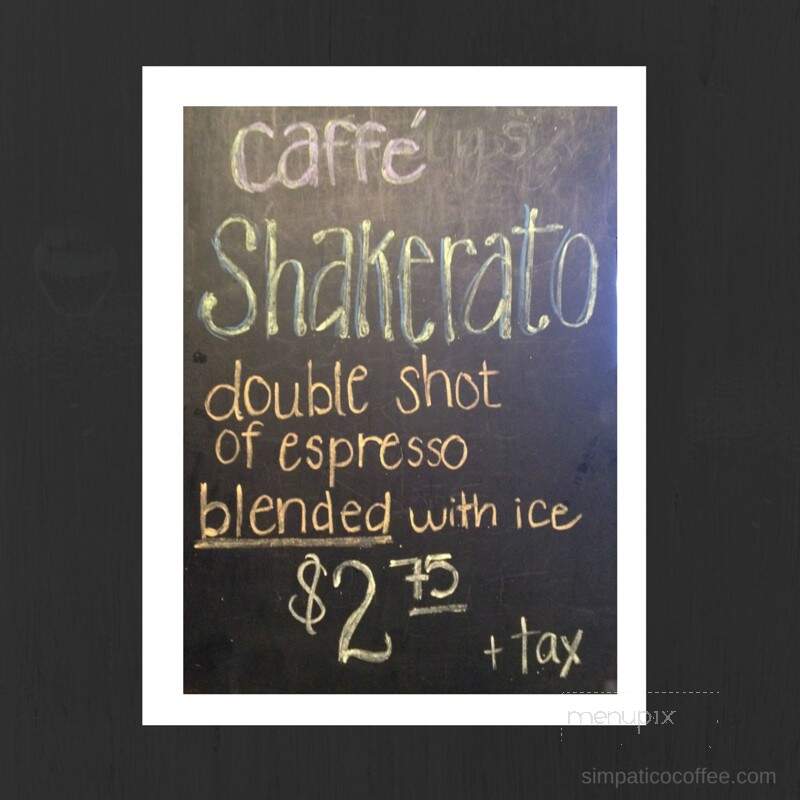 caffé
Shakerato
double shot
of espresso
blended with ice
$2 75
+ tax
menupix
simpaticocoffee.com